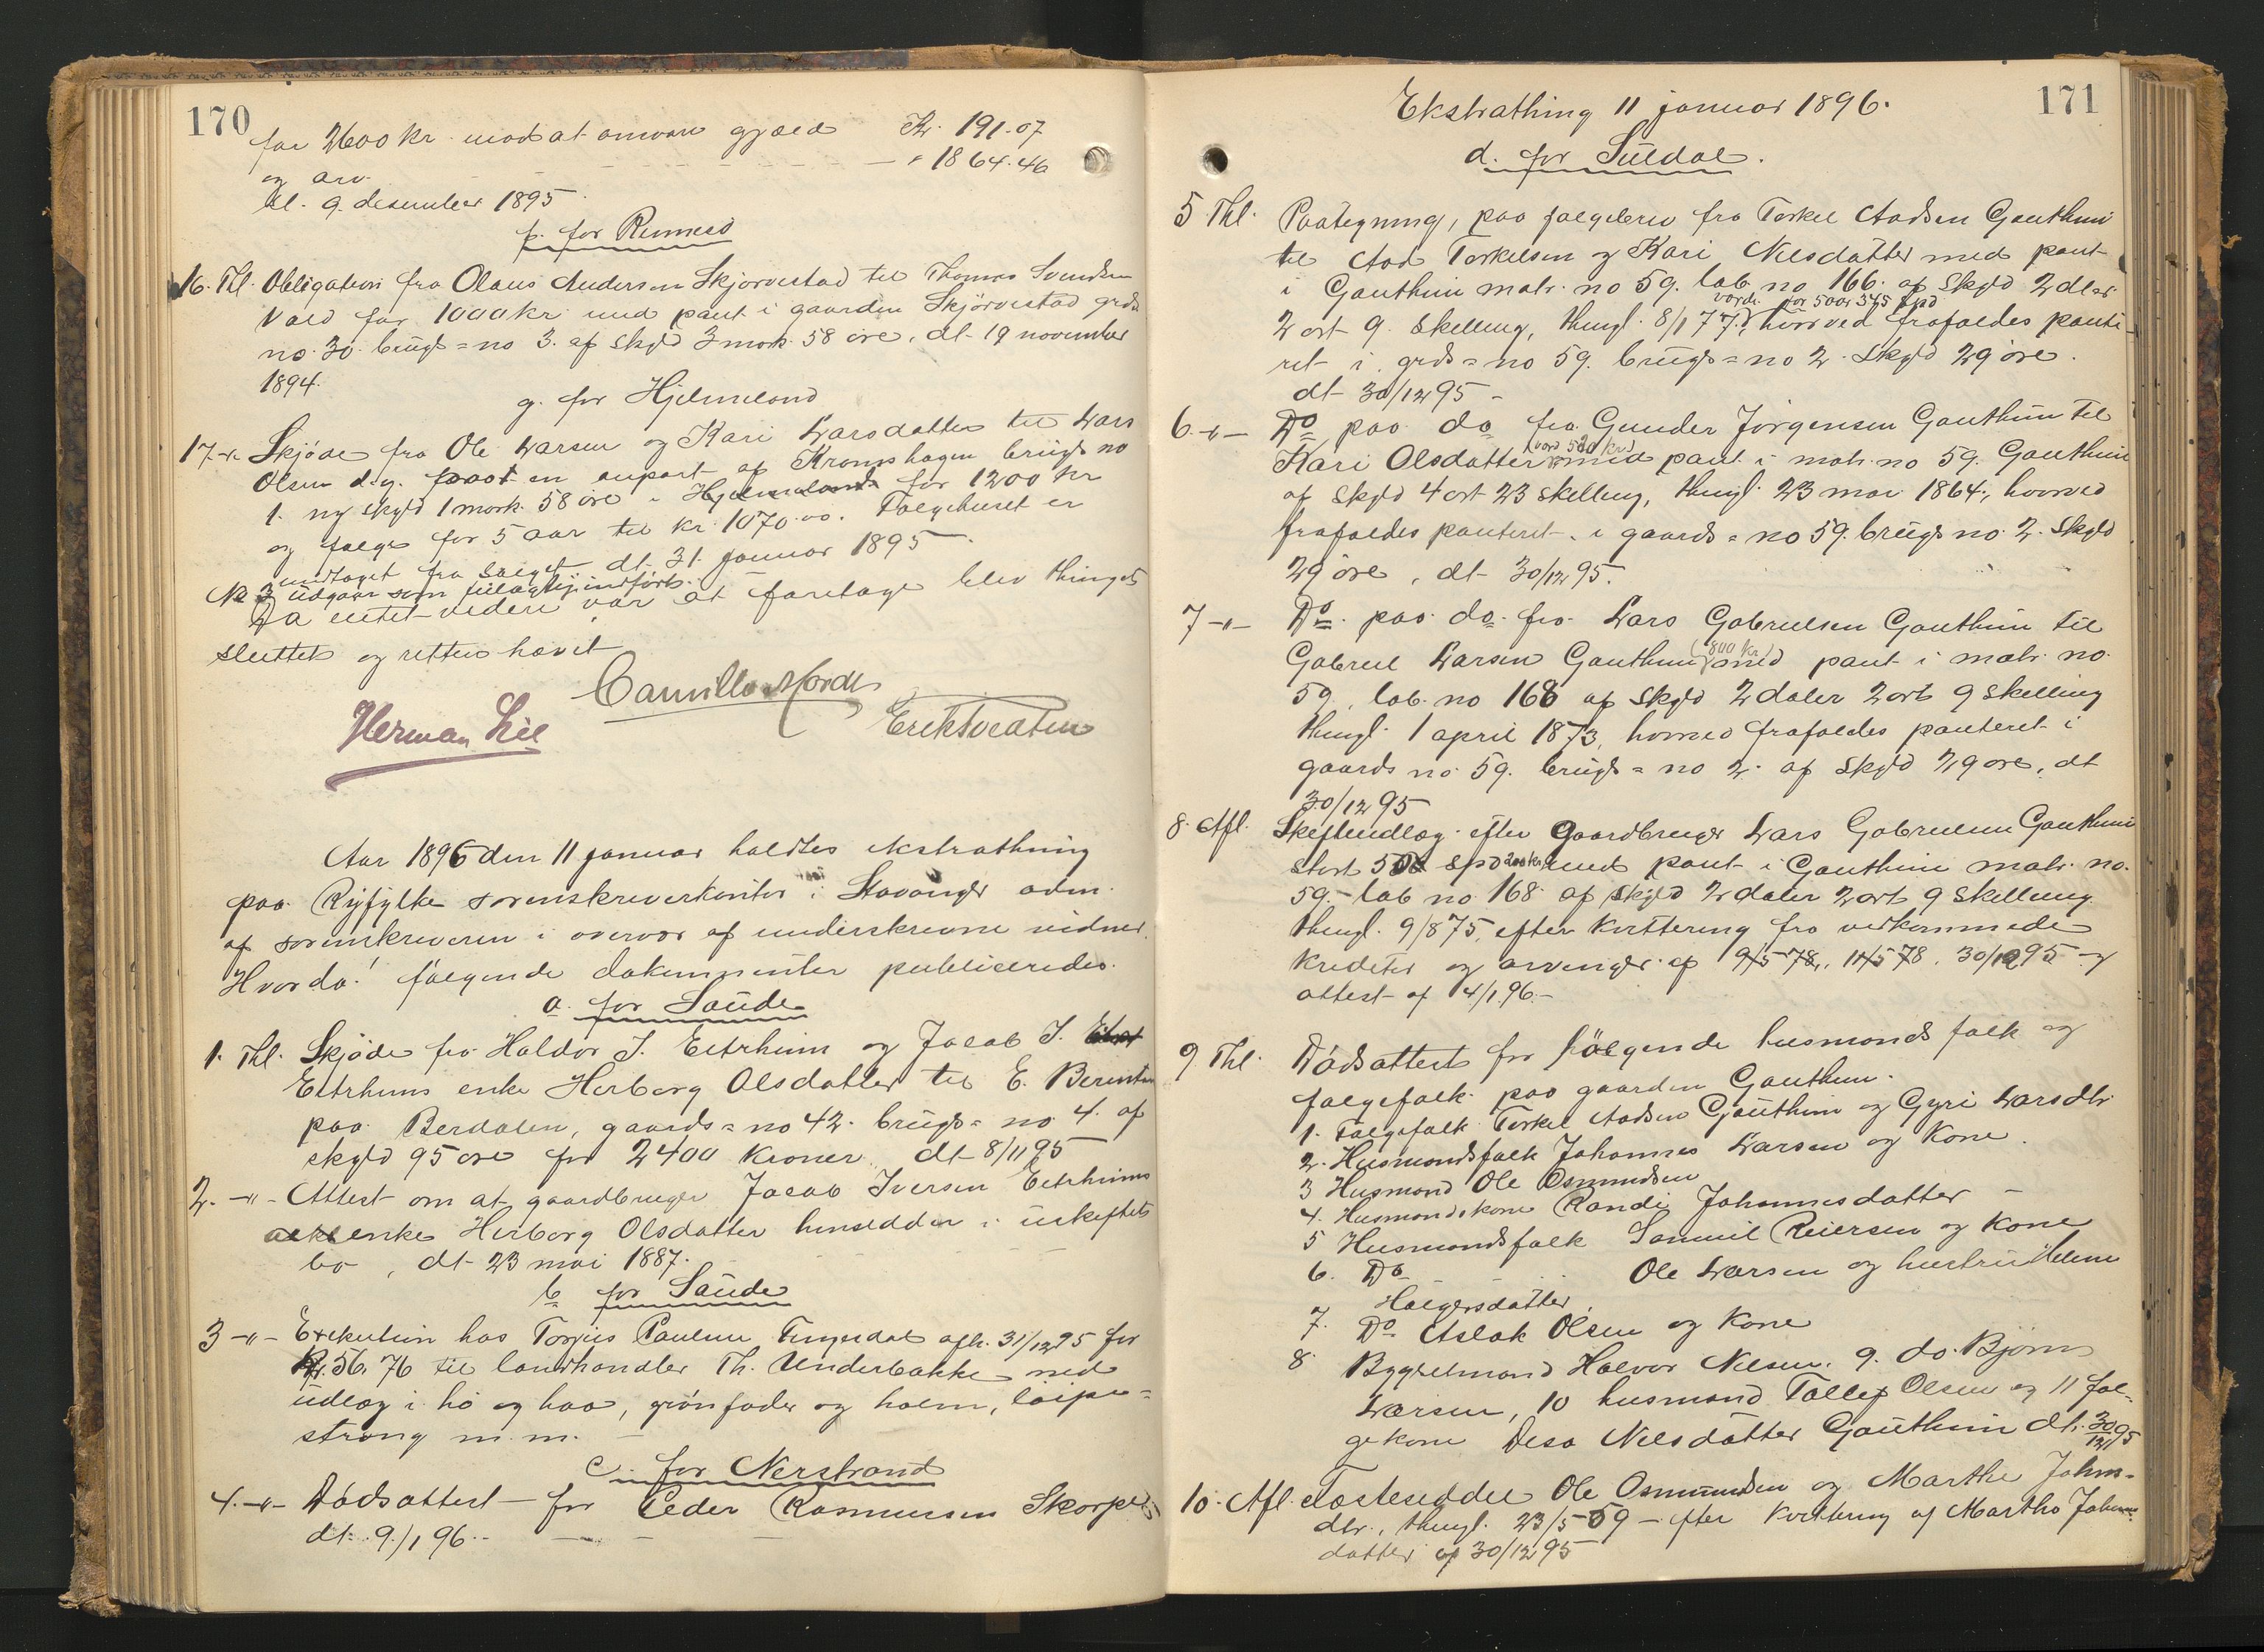 170
for 2600 kr. mod at ansvare gjæld Kr. 191.07
og arv - - - - - - - " 1864.46
dt. 9. desember 1895
f. for Rennesø
16. Thl. Obligation fra Olaus Andersen Skjørvestad til Thomas Svendsen
Vald for 1000 kr. med pant i gaarden Skjørvestad grds
no. 30. brugs=no 3. af skyld 3 mark 58 øre, dt. 19 november
1894.
g. for Hjelmeland
17 -"- Skjøde fra Ole Larsen og Kari Larsdatter til Lars
Olsen d.y. paa en anpart af Kromshagen brugs no
1. ny skyld 1 mark 58 øre i Hjelmeland for 1200 kr
og folge for 5 aar til kr. 1070.00. Folgehuset er
undtaget fra salget dt. 31. januar 1895.
No 3 udgaar som feilagtig indført.
Da intet videre var at foretage blev thinget
sluttet og retten hævet
Camilla Horde
Herman Lie
Erik Tveaten
Aar 1896 den 11 januar holdtes ekstrathing
paa Ryfylke sorenskriverkontor i Stavanger adm.
af sorenskriveren i overvær af underskrevne vidner.
Hvorda! følgende dokumenter publiceredes.
a. for Saude
1. Thl. Skjøde fra Haldor J. Eitrheim og Jacob J.
Eitrheims enke Herborg Olsdatter til E. Berentsen
paa Berdalen, gaards=no 42. brugs=no 4. af
skyld 95 øre for 2400 kroner. dt. 8/11 95
2. -"- Attest om at gaardbruger Jacob Iversen Eitrheims
enke Herborg Olsdatter hensidder i uskiftet
bo, dt. 23 mai 1887.
b for Saude
3 -"- Exekution hos Torjus Paulsen Tengesdal afh. 31/12 95 for
Kr. 56.76 til landhandler Th. Underbakke med
udlæg i hø og haa, grønfoder og halm, løipe=
stræng m.m.
c. for Nerstrand
4. -"- Dødsattest for Peder Rasmussen Skorpe
dt. 9/1 96.
171
Ekstrathing 11 januar 1896.
d. for Suldal.
5 Thl. Paategning, paa folgebrev fra Torkel Aadsen Gauthun
til Aad Torkelsen og Kari Nilsdatter med pant
i Gauthun matr. no 59. løb no 166. af skyld 2 dlr.
værdi for 5 aar 375 spd
2 ort 9. skelling, thingl. 8/1 77., hvorved frafaldes pante-
ret i grds=no 59. brugs=no 2. skyld 29 øre.
dt 30/12 95 -
6. -"- Do paa do fra Gunder Jørgensen Gauthun til
(værd 520 kr)
Kari Olsdatter med pant i matr. no 59. Gauthun
af skyld 4 ort 23 skelling, thingl. 23 mai 1864, hvorved
frafaldes panteret i gaards=no 59. brugs no. 2. skyld
29 øre, dt 30/12 95.
7 -"- Do. paa do. fra Lars Gabrielsen Gauthun til
(800 kr)
Gabriel Larsen Gauthun med pant i matr. no.
59, løb. no 168 af skyld 2 daler 2 ort 9 skelling
thingl. 1 april 1873, hvorved frafaldes panteret i
gaards no 59. brugs=no 2. af skyld 29 øre, dt
30/12 95
8. Afl. Skifteudlæg efter gaardbruger Lars Gabrielsen Gauthun
stort 50 spd 200 kr med pant i Gauthun matr. no.
59. løb no 168 af skyld 2 daler 2 ort 9 skelling
thingl. 9/8 75, efter kvittering fra vedkommende
kreditor og arvinger af 9/5 78, 11/5 78. 30/12 95 og
attest af 4/1 96.-
9 Thl. Dødsattest for følgende husmands folk og
folgefolk paa gaarden Gauthun.
1. Folgefolk Torkel Aadsen Gauthun og Gyri Larsdtr
2. Husmandsfolk Johannes Larsen og Kone.
3 Husmand Ole Osmundsen
4. Husmandskone Randi Johannesdatter -
5 Husmandsfolk Samuel Reiersen og Kone
6. Do Ole Larsen og hustru Helene
Holgersdatter
7. Do Aslak Olsen og Kone
8. Bygselmand Halvor Nilsen. 9. do. Bjørn
Larsen, 10 husmand Tollef Olsen og 11 fol-
gekone Desa Nilsdatter Gauthun dt. 30/12 95
10. Afl. Fæsteseddel Ole Osmundsen og Marthe Johns-
dtr., thingl. 23/5 59 - efter kvittering af Martha Johns
datter af 30/12 95